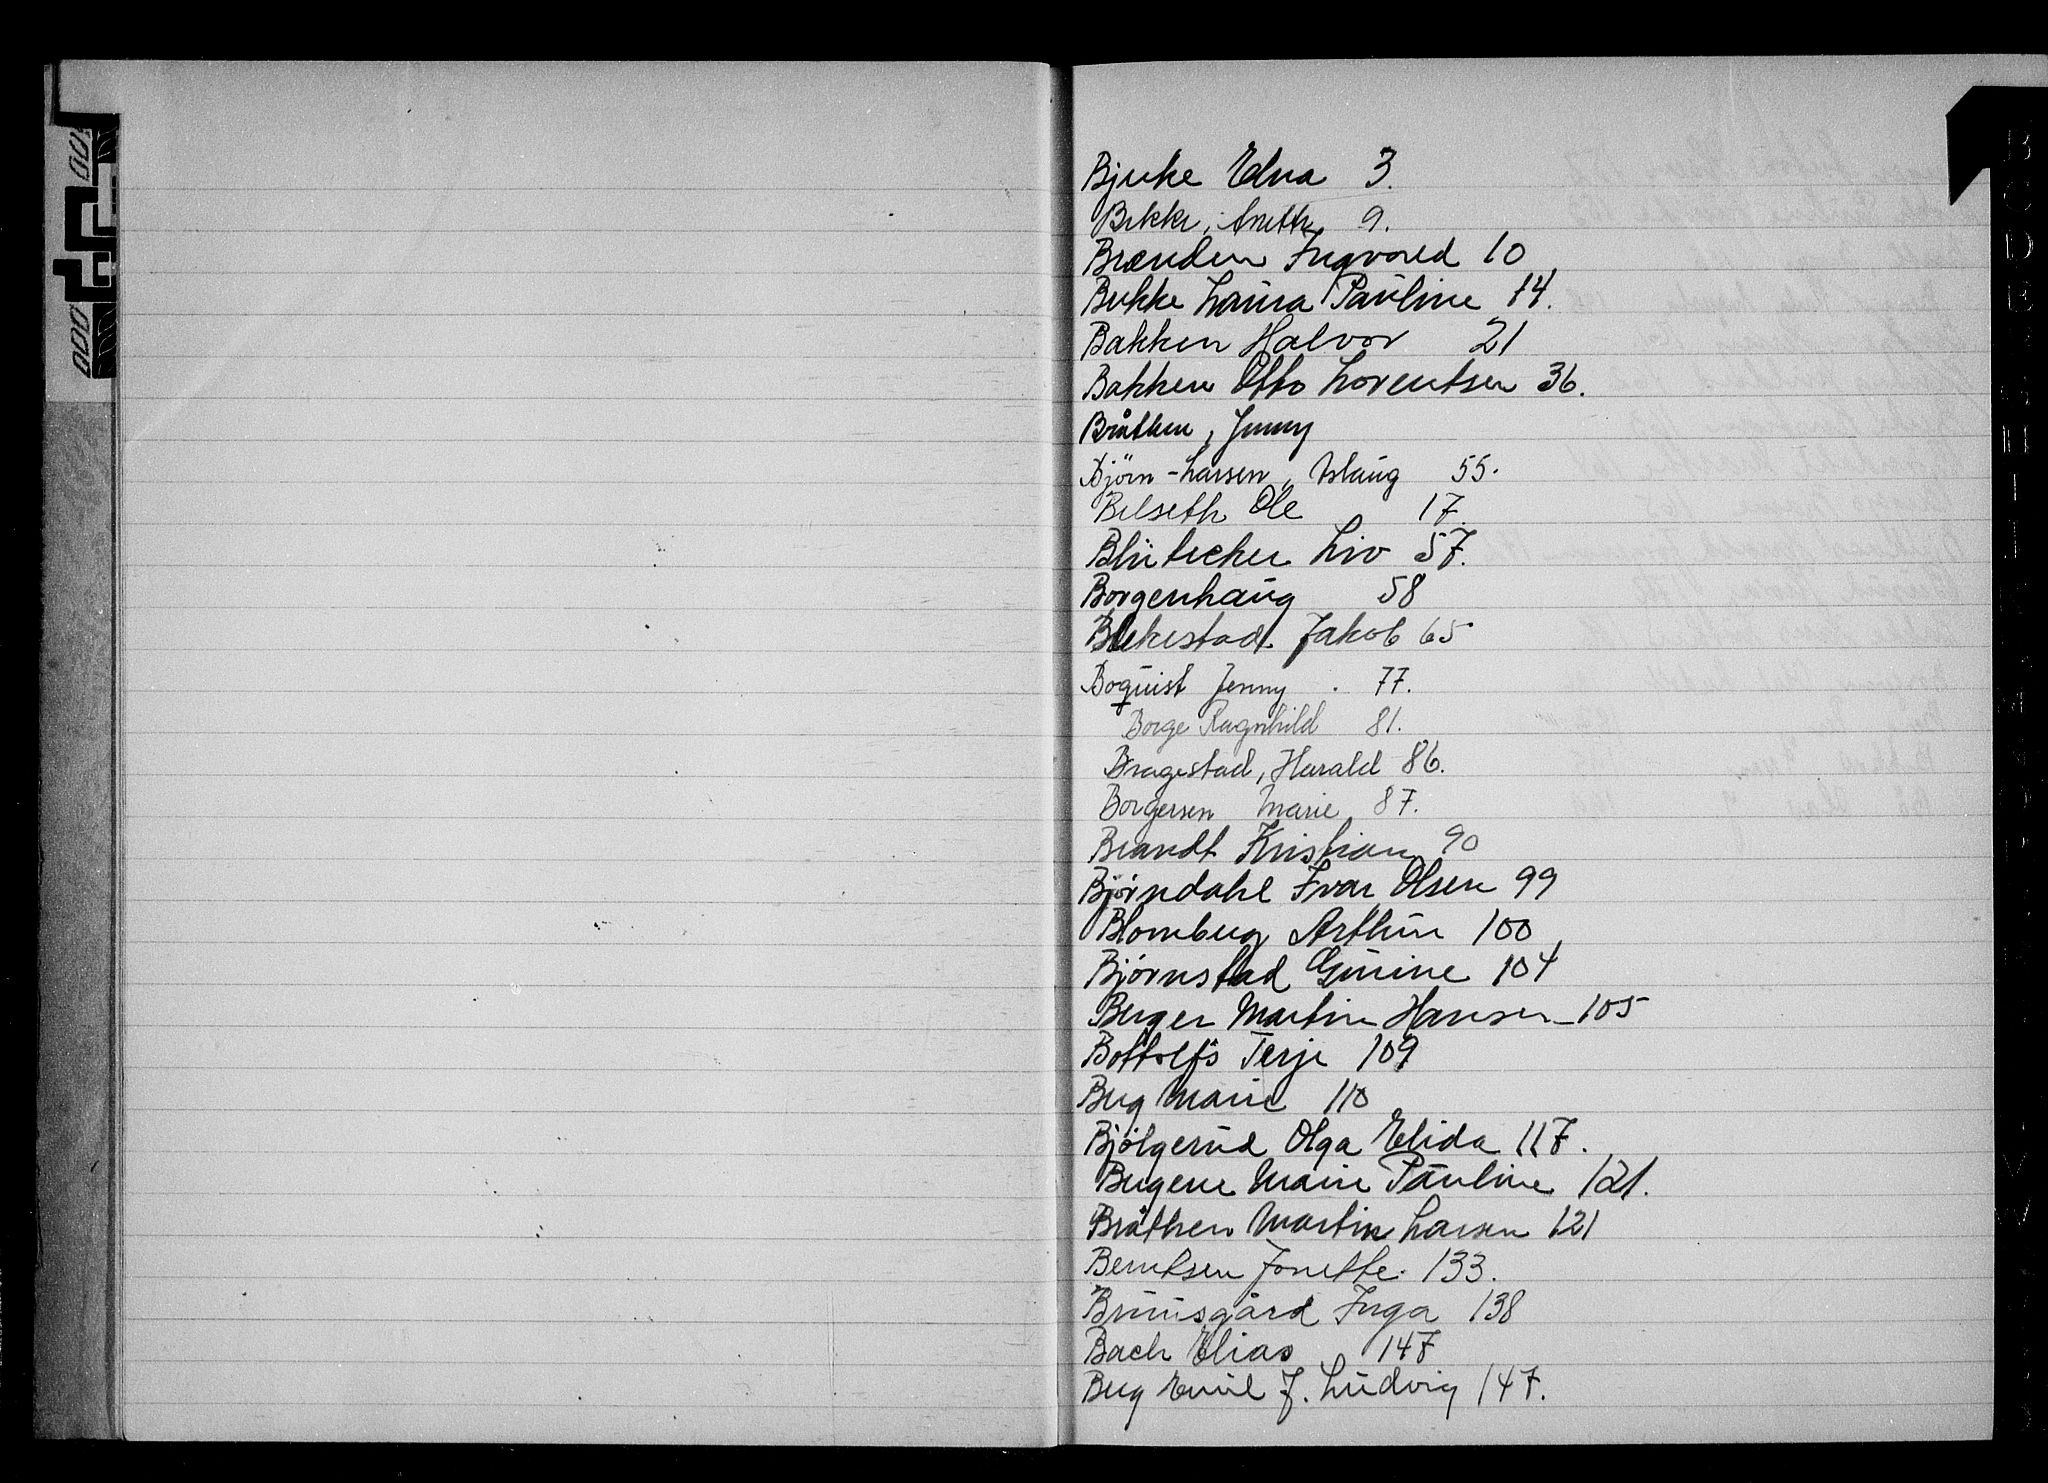 Bjerke Edna 3.
Bekke, Anette 9.
Brænden Ingvald 10
Bekke Laura Pauline 14.
Bakken Halvor 21
Bakken Otto Lorentsen 36.
Bråthen, Jenny
Bjørn-Larsen, Aslaug 55.
Belseth Ole 17.
Blütecher Liv 57.
Borgenhaug 58
Blekestad Jakob 65
Boquist Jenny 77.
Borge Ragnhild 81.
Bragestad, Harald 86.
Borgersen Marie 87.
Brandt Kristian 90
Bjørndahl Ivar Olsen 99
Blomberg Arthur 100
Bjørnstad Gurine 104
Berger Martin Hansen 105
Bottolfs Terje 109
Berg Marie 110
Bjølgerud Olga Elida 117.
Bergene Marie Pauline 121.
Bråthen Martin Larsen 121
Berntsen Jonette. 133.
Bruusgård Inga 138
Bach Elias 147
Berg Emil J. Ludvig 147.